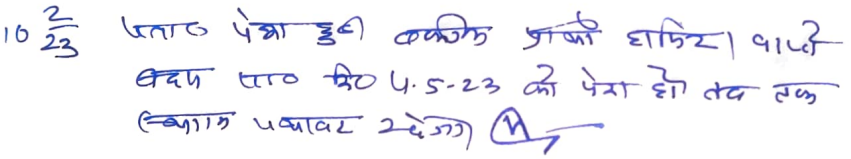 10 2/23 पत्रा० पेश हुई वकील प्रार्थी हाजिर। वास्ते
बहस पत्रा० दि० 4.5-23 को पेश हो तब तक
स्थगन यथावत रहेगा